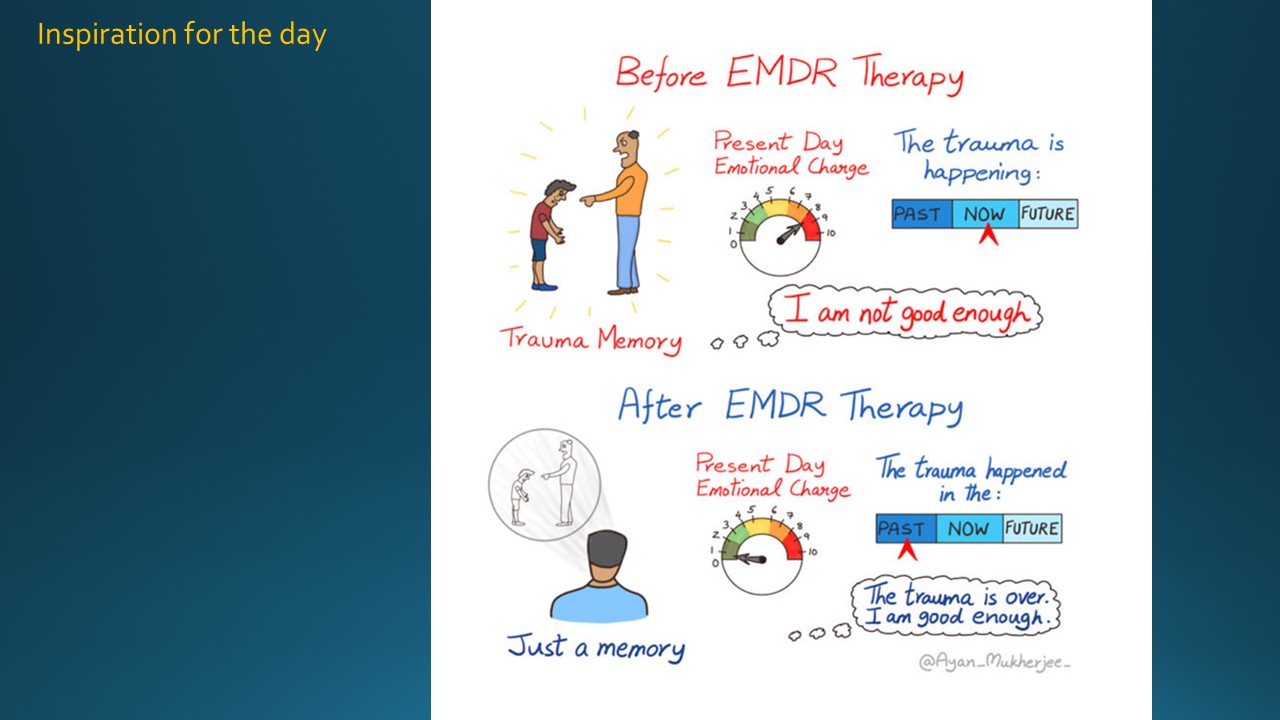 Inspiration for the day
Before EMDR Therapy
Present Day
Emotional Charge
0 1 2 3 4 5 6 7 8 9 10
The trauma is
happening:
PAST NOW FUTURE
I am not good enough
Trauma Memory
After EMDR Therapy
Present Day
Emotional Charge
0 1 2 3 4 5 6 7 8 9 10
The trauma happened
in the:
PAST NOW FUTURE
The trauma is over.
I am good enough.
Just a memory
@Ayan_Mukherjee_